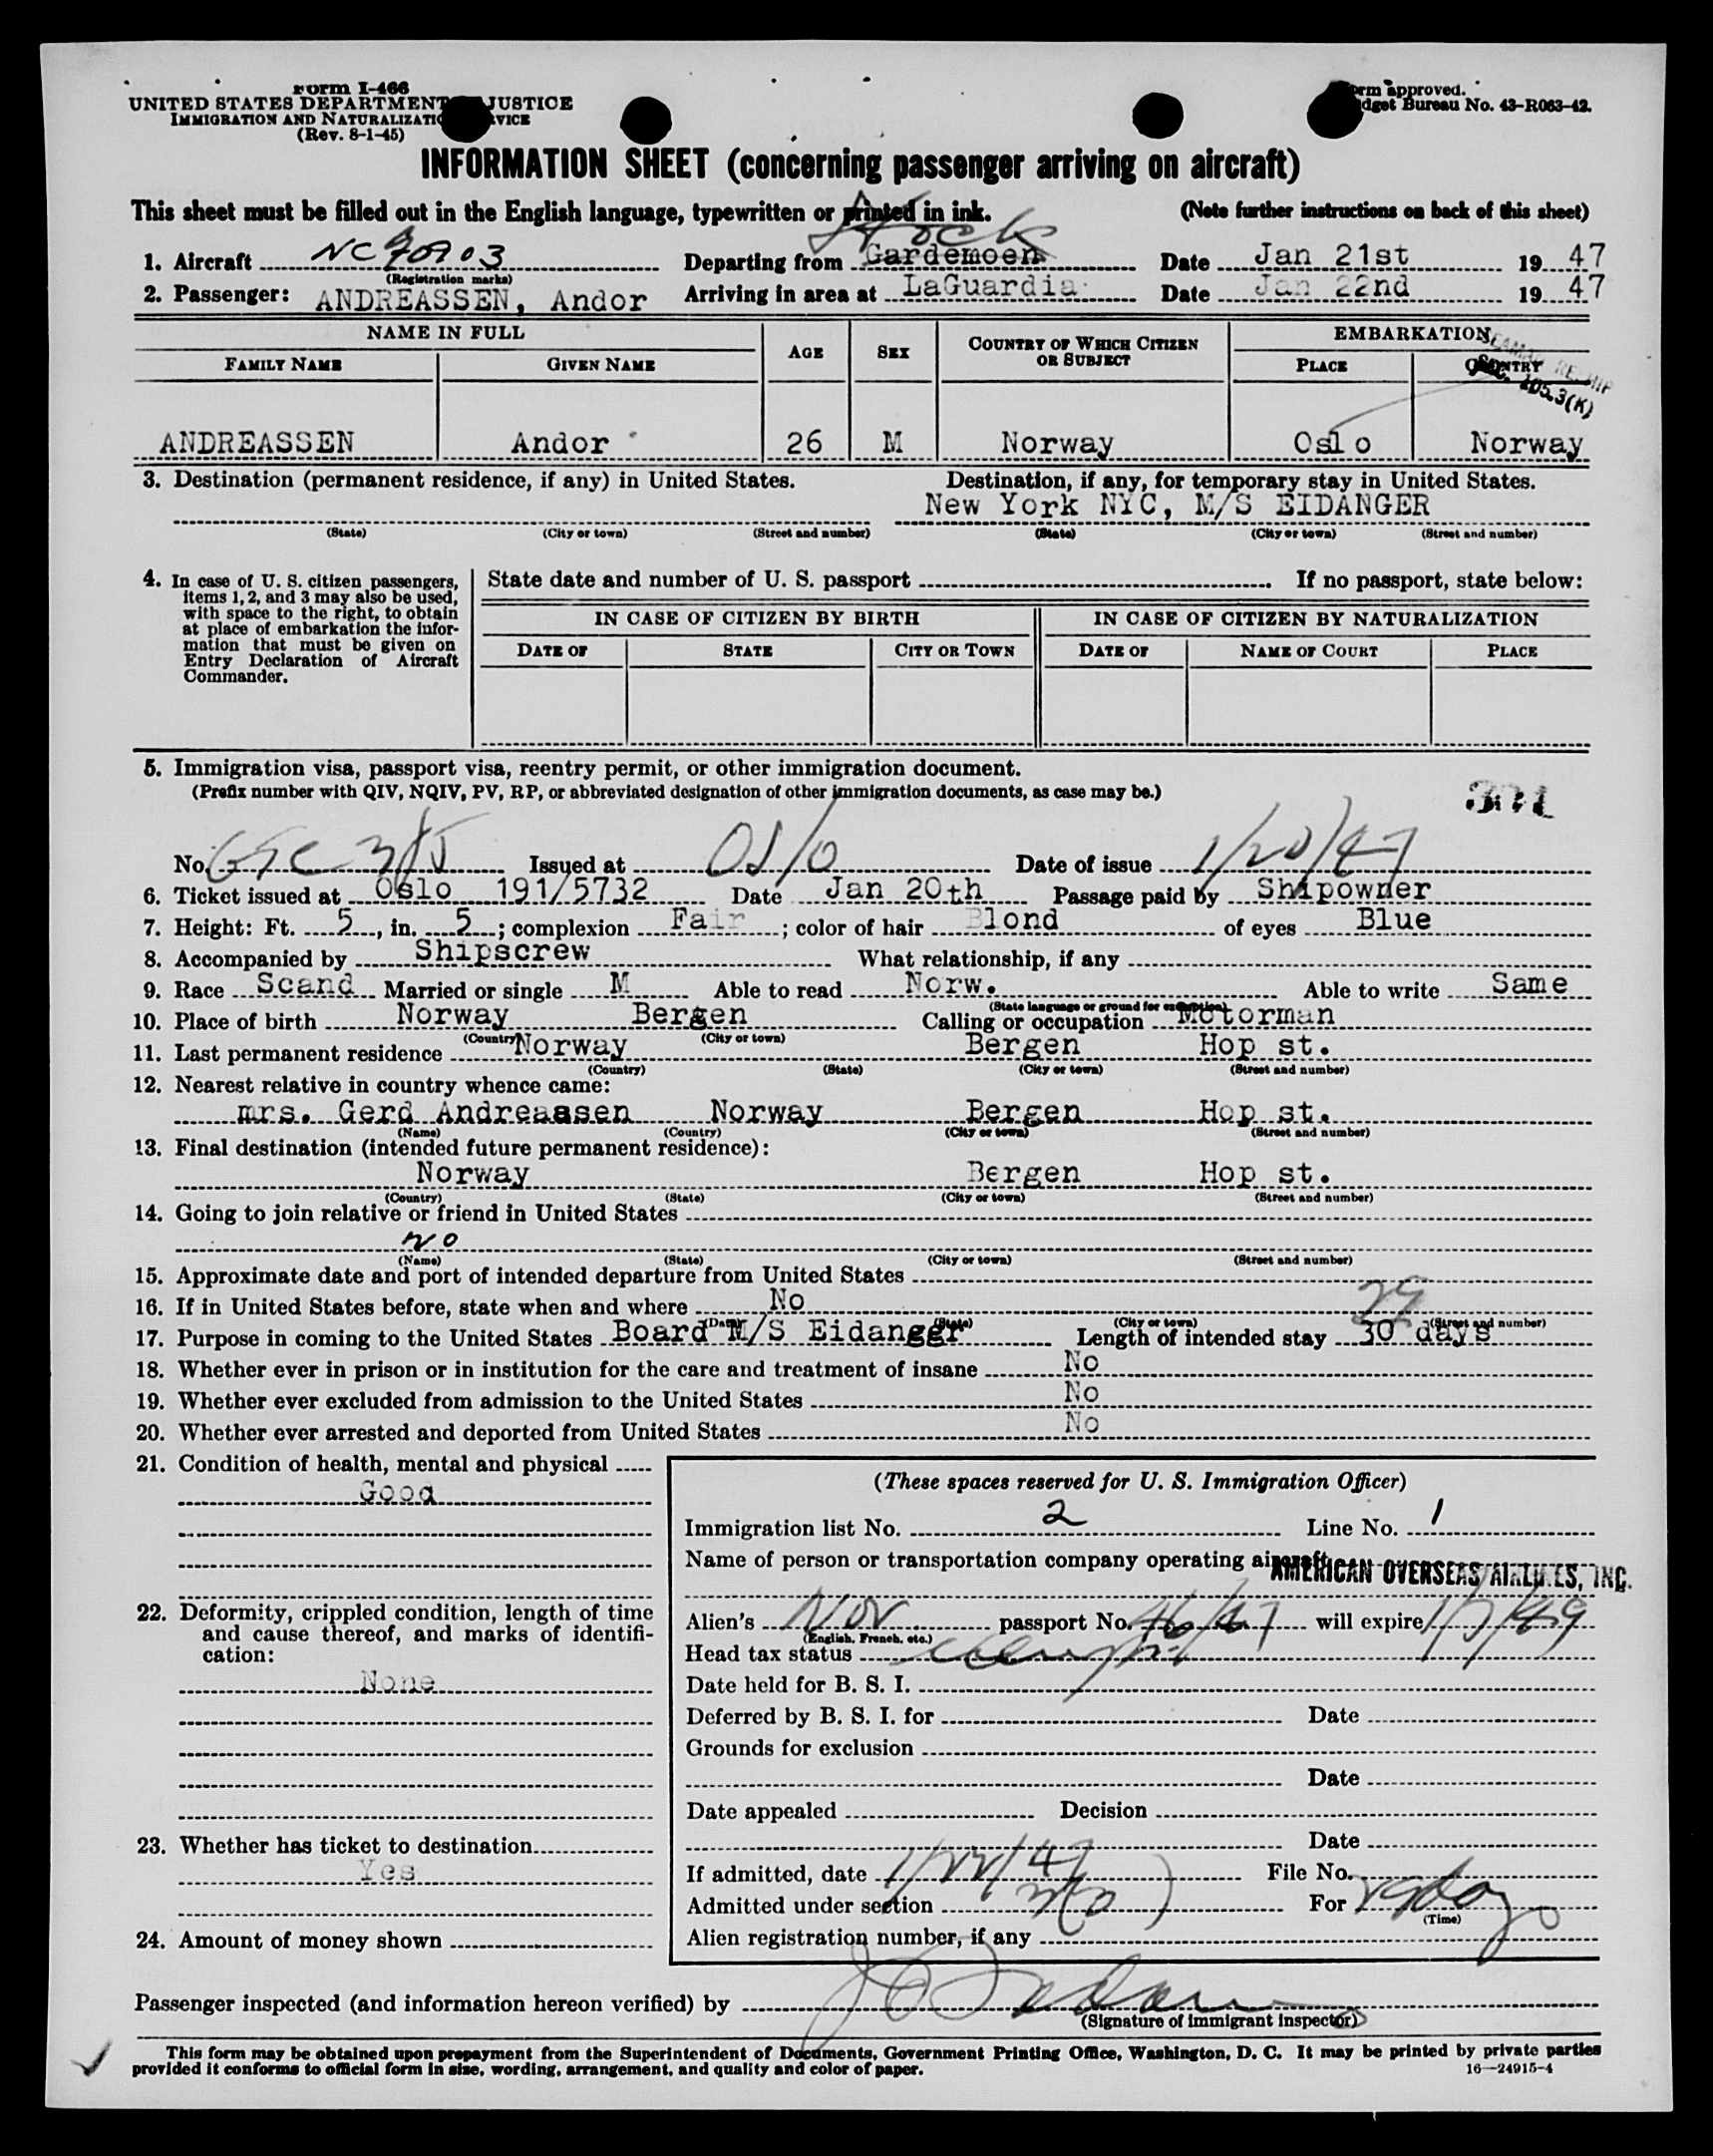 Form I-466
UNITED STATES DEPARTMENT JUSTICE
IMMIGRATION AND NATURALIZATION SERVICE
(Rev. 8-1-45)
Form approved.
Budget Bureau No. 43-R063-42.
INFORMATION SHEET (concerning passenger arriving on aircraft)
This sheet must be filled out in the English language, typewritten or printed in ink. (Note further instructions on back of this sheet)
Stock
1. Aircraft NC90903 Departing from Gardemoen Date Jan 21st 1947
(Registration marks)
2. Passenger: ANDREASSEN, Andor Arriving in area at LaGuardia Date Jan 22nd 1947
NAME IN FULL AGE SEX COUNTRY OF WHICH CITIZEN OR SUBJECT EMBARKATION
FAMILY NAME GIVEN NAME PLACE COUNTRY
105.3(K)
ANDREASSEN Andor 26 M Norway Oslo Norway
3. Destination (permanent residence, if any) in United States. Destination, if any, for temporary stay in United States.
New York NYC, M/S EIDANGER
(State) (City or town) (Street and number) (State) (City or town) (Street and number)
4. In case of U. S. citizen passengers, items 1, 2, and 3 may also be used, with space to the right, to obtain at place of embarkation the information that must be given on Entry Declaration of Aircraft Commander.
State date and number of U. S. passport If no passport, state below:
IN CASE OF CITIZEN BY BIRTH IN CASE OF CITIZEN BY NATURALIZATION
DATE OF STATE CITY OR TOWN DATE OF NAME OF COURT PLACE
5. Immigration visa, passport visa, reentry permit, or other immigration document.
(Prefix number with QIV, NQIV, PV, RP, or abbreviated designation of other immigration documents, as case may be.)
No. Issued at Oslo Date of issue 1/20/47
6. Ticket issued at Oslo 191/5732 Date Jan 20th Passage paid by Shipowner
7. Height: Ft. 5, in. 5; complexion Fair; color of hair Blond of eyes Blue
8. Accompanied by Shipscrew What relationship, if any
9. Race Scand Married or single M Able to read Norw. Able to write Same
(State language or ground for exemption)
10. Place of birth Norway Bergen Calling or occupation Motorman
(Country) (City or town)
11. Last permanent residence Norway Bergen Hop st.
(Country) (State) (City or town) (Street and number)
12. Nearest relative in country whence came:
mrs. Gerd Andreassen Norway Bergen Hop st.
(Name) (Country) (City or town) (Street and number)
13. Final destination (intended future permanent residence):
Norway Bergen Hop st.
(Country) (State) (City or town) (Street and number)
14. Going to join relative or friend in United States
No
(Name) (State) (City or town) (Street and number)
15. Approximate date and port of intended departure from United States
16. If in United States before, state when and where No
(Date) (State) (City or town) (Street and number)
29
17. Purpose in coming to the United States Board M/S Eidanger Length of intended stay 30 days
18. Whether ever in prison or in institution for the care and treatment of insane No
19. Whether ever excluded from admission to the United States No
20. Whether ever arrested and deported from United States No
21. Condition of health, mental and physical
Good
22. Deformity, crippled condition, length of time and cause thereof, and marks of identification:
None
23. Whether has ticket to destination
Yes
24. Amount of money shown
(These spaces reserved for U. S. Immigration Officer)
Immigration list No. 2 Line No. 1
Name of person or transportation company operating aircraft
AMERICAN OVERSEAS AIRLINES, INC.
Alien's Nor passport No. 46/47 will expire 1/7/49
(English, French, etc.)
Head tax status
Date held for B. S. I.
Deferred by B. S. I. for Date
Grounds for exclusion
Date
Date appealed Decision
Date
If admitted, date 1/22/47 File No.
Admitted under section For 29 days
(Time)
Alien registration number, if any
Passenger inspected (and information hereon verified) by
(Signature of immigrant inspector)
This form may be obtained upon prepayment from the Superintendent of Documents, Government Printing Office, Washington, D. C. It may be printed by private parties
provided it conforms to official form in size, wording, arrangement, and quality and color of paper. 16—24915-4